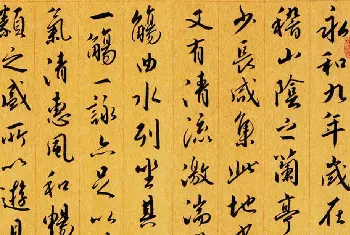 永和九年歲在
稽山陰之蘭亭
少長咸集此地
又有清流激湍
觴曲水列坐其
一觴一詠亦足以
氣清惠風和暢
類之盛所以遊目